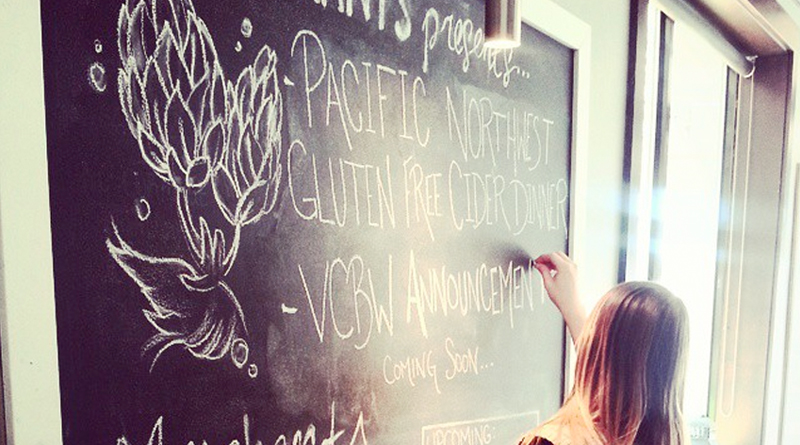 presents...
- PACIFIC NORTHWEST
GLUTEN FREE CIDER DINNER
- VCBW ANNOUNCEMENT
COMING SOON...
UPCOMING: